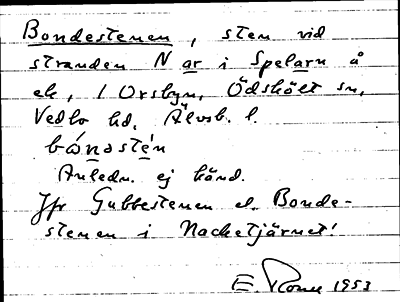 Bondestenen, sten vid
stranden N ar i Spelarn å
ek, 1 Orsbyn, Ödskölt sn,
Vedbo hd. Älvsb. l.
bónastén
Anledn. ej känd.
Jfr Gubbestenen el. Bonde-
stenen i Nacketjärnet!
E. 1953